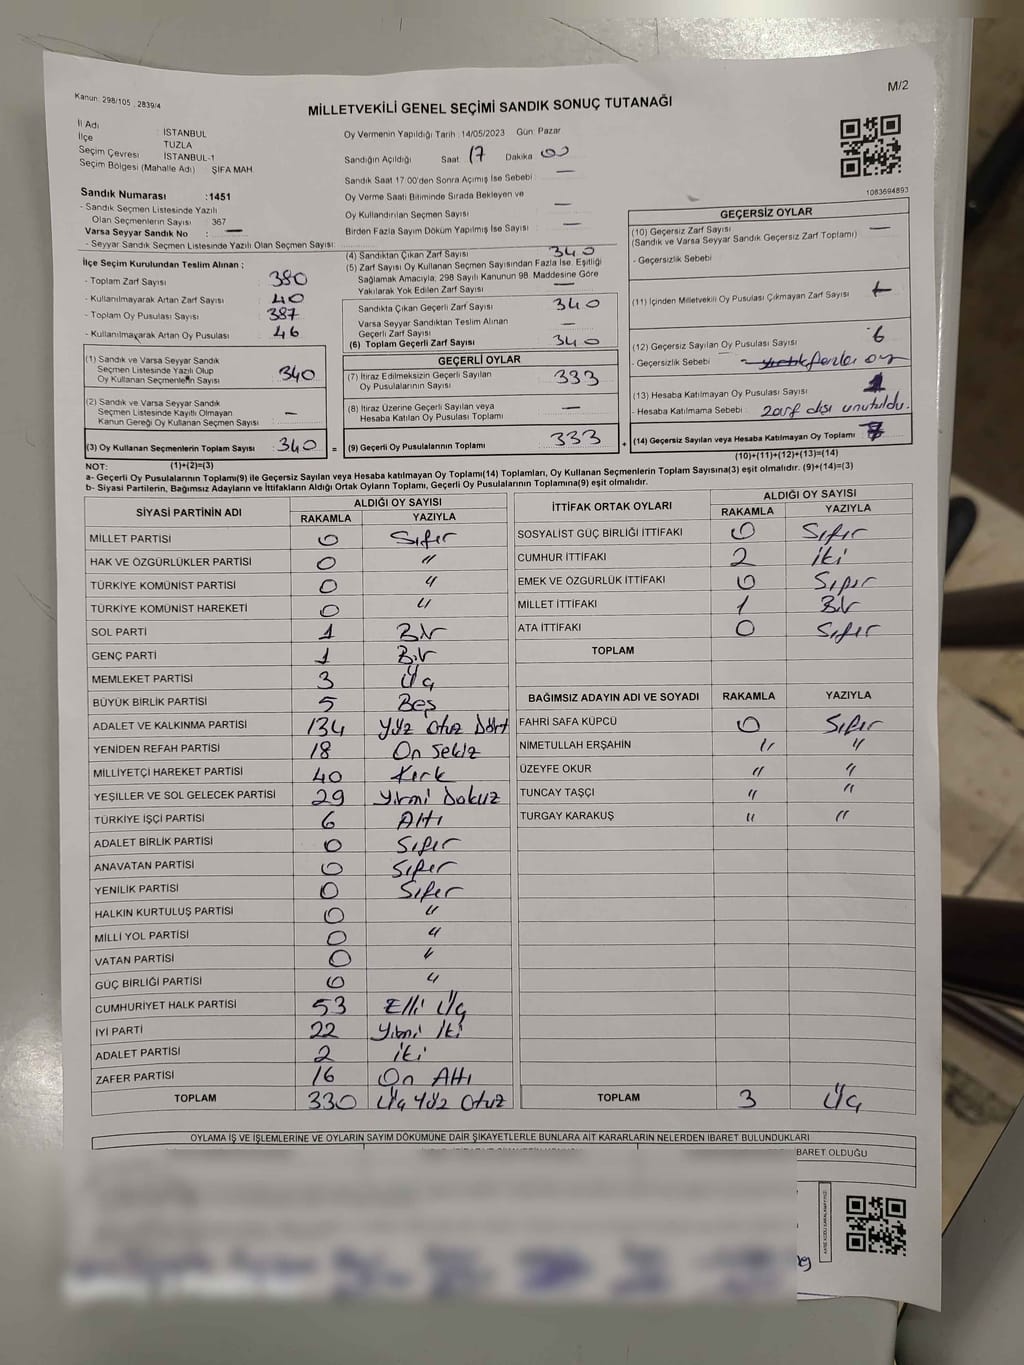 Kanun: 298/105 , 2839/4
M/2
MİLLETVEKİLİ GENEL SEÇİMİ SANDIK SONUÇ TUTANAĞI
İl Adı : İSTANBUL
İlçe TUZLA
Seçim Çevresi İSTANBUL-1
Seçim Bölgesi (Mahalle Adı) : ŞİFA MAH.
Sandık Numarası :1451
- Sandık Seçmen Listesinde Yazılı
Olan Seçmenlerin Sayısı : 367
Varsa Seyyar Sandık No : —
- Seyyar Sandık Seçmen Listesinde Yazılı Olan Seçmen Sayısı:
Oy Vermenin Yapıldığı Tarih : 14/05/2023 Gün: Pazar
Sandığın Açıldığı Saat: 17 Dakika 00
Sandık Saat 17:00'den Sonra Açımış İse Sebebi : —
Oy Verme Saati Bitiminde Sırada Bekleyen ve
Oy Kullandırılan Seçmen Sayısı : —
Birden Fazla Sayım Döküm Yapılmış İse Sayısı : —
1083694893
İlçe Seçim Kurulundan Teslim Alınan ;
- Toplam Zarf Sayısı : 380
- Kullanılmayarak Artan Zarf Sayısı : 40
- Toplam Oy Pusulası Sayısı : 387
- Kullanılmayarak Artan Oy Pusulası : 46
(1) Sandık ve Varsa Seyyar Sandık
Seçmen Listesinde Yazılı Olup
Oy Kullanan Seçmenlerin Sayısı : 340
(2) Sandık ve Varsa Seyyar Sandık
Seçmen Listesinde Kayıtlı Olmayan
Kanun Gereği Oy Kullanan Seçmen Sayısı : —
(3) Oy Kullanan Seçmenlerin Toplam Sayısı : 340
(4) Sandıktan Çıkan Zarf Sayısı : 340
(5) Zarf Sayısı Oy Kullanan Seçmen Sayısından Fazla İse, Eşitliği
Sağlamak Amacıyla, 298 Sayılı Kanunun 98. Maddesine Göre
Yakılarak Yok Edilen Zarf Sayısı : —
Sandıkta Çıkan Geçerli Zarf Sayısı : 340
Varsa Seyyar Sandıktan Teslim Alınan
Geçerli Zarf Sayısı : —
(6) Toplam Geçerli Zarf Sayısı : 340
GEÇERLİ OYLAR
(7) İtiraz Edilmeksizin Geçerli Sayılan
Oy Pusulalarının Sayısı : 333
(8) İtiraz Üzerine Geçerli Sayılan veya
Hesaba Katılan Oy Pusulası Toplamı : —
= (9) Geçerli Oy Pusulalarının Toplamı : 333 +
GEÇERSİZ OYLAR
(10) Geçersiz Zarf Sayısı : —
(Sandık ve Varsa Seyyar Sandık Geçersiz Zarf Toplamı)
- Geçersizlik Sebebi :
(11) İçinden Milletvekili Oy Pusulası Çıkmayan Zarf Sayısı :
(12) Geçersiz Sayılan Oy Pusulası Sayısı : 6
- Geçersizlik Sebebi : fazla oy
(13) Hesaba Katılmayan Oy Pusulası Sayısı : 1
- Hesaba Katılmama Sebebi : zarf dışı unutuldu.
(14) Geçersiz Sayılan veya Hesaba Katılmayan Oy Toplamı : 7
(10)+(11)+(12)+(13)=(14)
NOT: (1)+(2)=(3)
a- Geçerli Oy Pusulalarının Toplamı(9) ile Geçersiz Sayılan veya Hesaba katılmayan Oy Toplamı(14) Toplamları, Oy Kullanan Seçmenlerin Toplam Sayısına(3) eşit olmalıdır. (9)+(14)=(3)
b- Siyasi Partilerin, Bağımsız Adayların ve İttifakların Aldığı Ortak Oyların Toplamı, Geçerli Oy Pusulalarının Toplamına(9) eşit olmalıdır.
SİYASİ PARTİNİN ADI ALDIĞI OY SAYISI
RAKAMLA YAZIYLA
MİLLET PARTİSİ 0 Sıfır
HAK VE ÖZGÜRLÜKLER PARTİSİ 0 "
TÜRKİYE KOMÜNİST PARTİSİ 0 "
TÜRKİYE KOMÜNİST HAREKETİ 0 "
SOL PARTİ 1 Bir
GENÇ PARTİ 1 Bir
MEMLEKET PARTİSİ 3 Üç
BÜYÜK BİRLİK PARTİSİ 5 Beş
ADALET VE KALKINMA PARTİSİ 134 Yüz Otuz Dört
YENİDEN REFAH PARTİSİ 18 On Sekiz
MİLLİYETÇİ HAREKET PARTİSİ 40 Kırk
YEŞİLLER VE SOL GELECEK PARTİSİ 29 Yirmi Dokuz
TÜRKİYE İŞÇİ PARTİSİ 6 Altı
ADALET BİRLİK PARTİSİ 0 Sıfır
ANAVATAN PARTİSİ 0 Sıfır
YENİLİK PARTİSİ 0 Sıfır
HALKIN KURTULUŞ PARTİSİ 0 "
MİLLİ YOL PARTİSİ 0 "
VATAN PARTİSİ 0 "
GÜÇ BİRLİĞİ PARTİSİ 0 "
CUMHURİYET HALK PARTİSİ 53 Elli Üç
İYİ PARTİ 22 Yirmi İki
ADALET PARTİSİ 2 İki
ZAFER PARTİSİ 16 On Altı
TOPLAM 330 Üç Yüz Otuz
İTTİFAK ORTAK OYLARI ALDIĞI OY SAYISI
RAKAMLA YAZIYLA
SOSYALİST GÜÇ BİRLİĞİ İTTİFAKI 0 Sıfır
CUMHUR İTTİFAKI 2 İki
EMEK VE ÖZGÜRLÜK İTTİFAKI 0 Sıfır
MİLLET İTTİFAKI 1 Bir
ATA İTTİFAKI 0 Sıfır
TOPLAM
BAĞIMSIZ ADAYIN ADI VE SOYADI RAKAMLA YAZIYLA
FAHRİ SAFA KÜPCÜ 0 Sıfır
NİMETULLAH ERŞAHİN " "
ÜZEYFE OKUR " "
TUNCAY TAŞÇI " "
TURGAY KARAKUŞ " "
TOPLAM 3 Üç
OYLAMA İŞ VE İŞLEMLERİNE VE OYLARIN SAYIM DÖKÜMÜNE DAİR ŞİKAYETLERLE BUNLARA AİT KARARLARIN NELERDEN İBARET BULUNDUKLARI
İBARET OLDUĞU